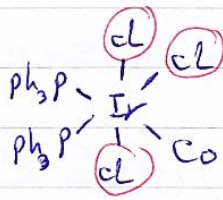 cl
cl
Ph3P
Ir
Ph3P
cl
Co